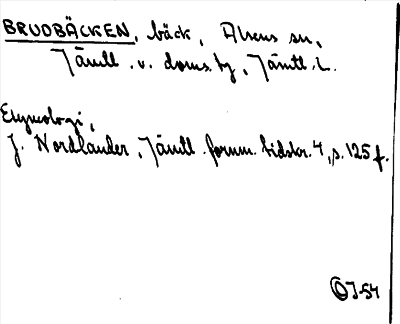 BRUDBÄCKEN, bäck, Alsens sn,
Jämtl. v. doms. by, Jämtl. L.
Etymologi,
J. Nordlander, Jämtl. fornm. tidskr. 4, s. 125 f.
J-54